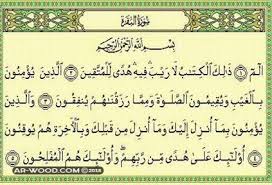 سُورَةُ البَقَرَةِ
بِسْمِ اللَّهِ الرَّحْمَٰنِ الرَّحِيمِ
الٓمٓ ١ ذَٰلِكَ ٱلْكِتَٰبُ لَا رَيْبَ فِيهِ هُدًى لِّلْمُتَّقِينَ ٢ ٱلَّذِينَ يُؤْمِنُونَ
بِٱلْغَيْبِ وَيُقِيمُونَ ٱلصَّلَوٰةَ وَمِمَّا رَزَقْنَٰهُمْ يُنفِقُونَ ٣ وَٱلَّذِينَ
يُؤْمِنُونَ بِمَآ أُنزِلَ إِلَيْكَ وَمَآ أُنزِلَ مِن قَبْلِكَ وَبِٱلْأَخِرَةِ هُمْ يُوقِنُونَ
٤ أُو۟لَٰٓئِكَ عَلَىٰ هُدًى مِّن رَّبِّهِمْ وَأُو۟لَٰٓئِكَ هُمُ ٱلْمُفْلِحُونَ ٥
AR-WOOD.COM©2018